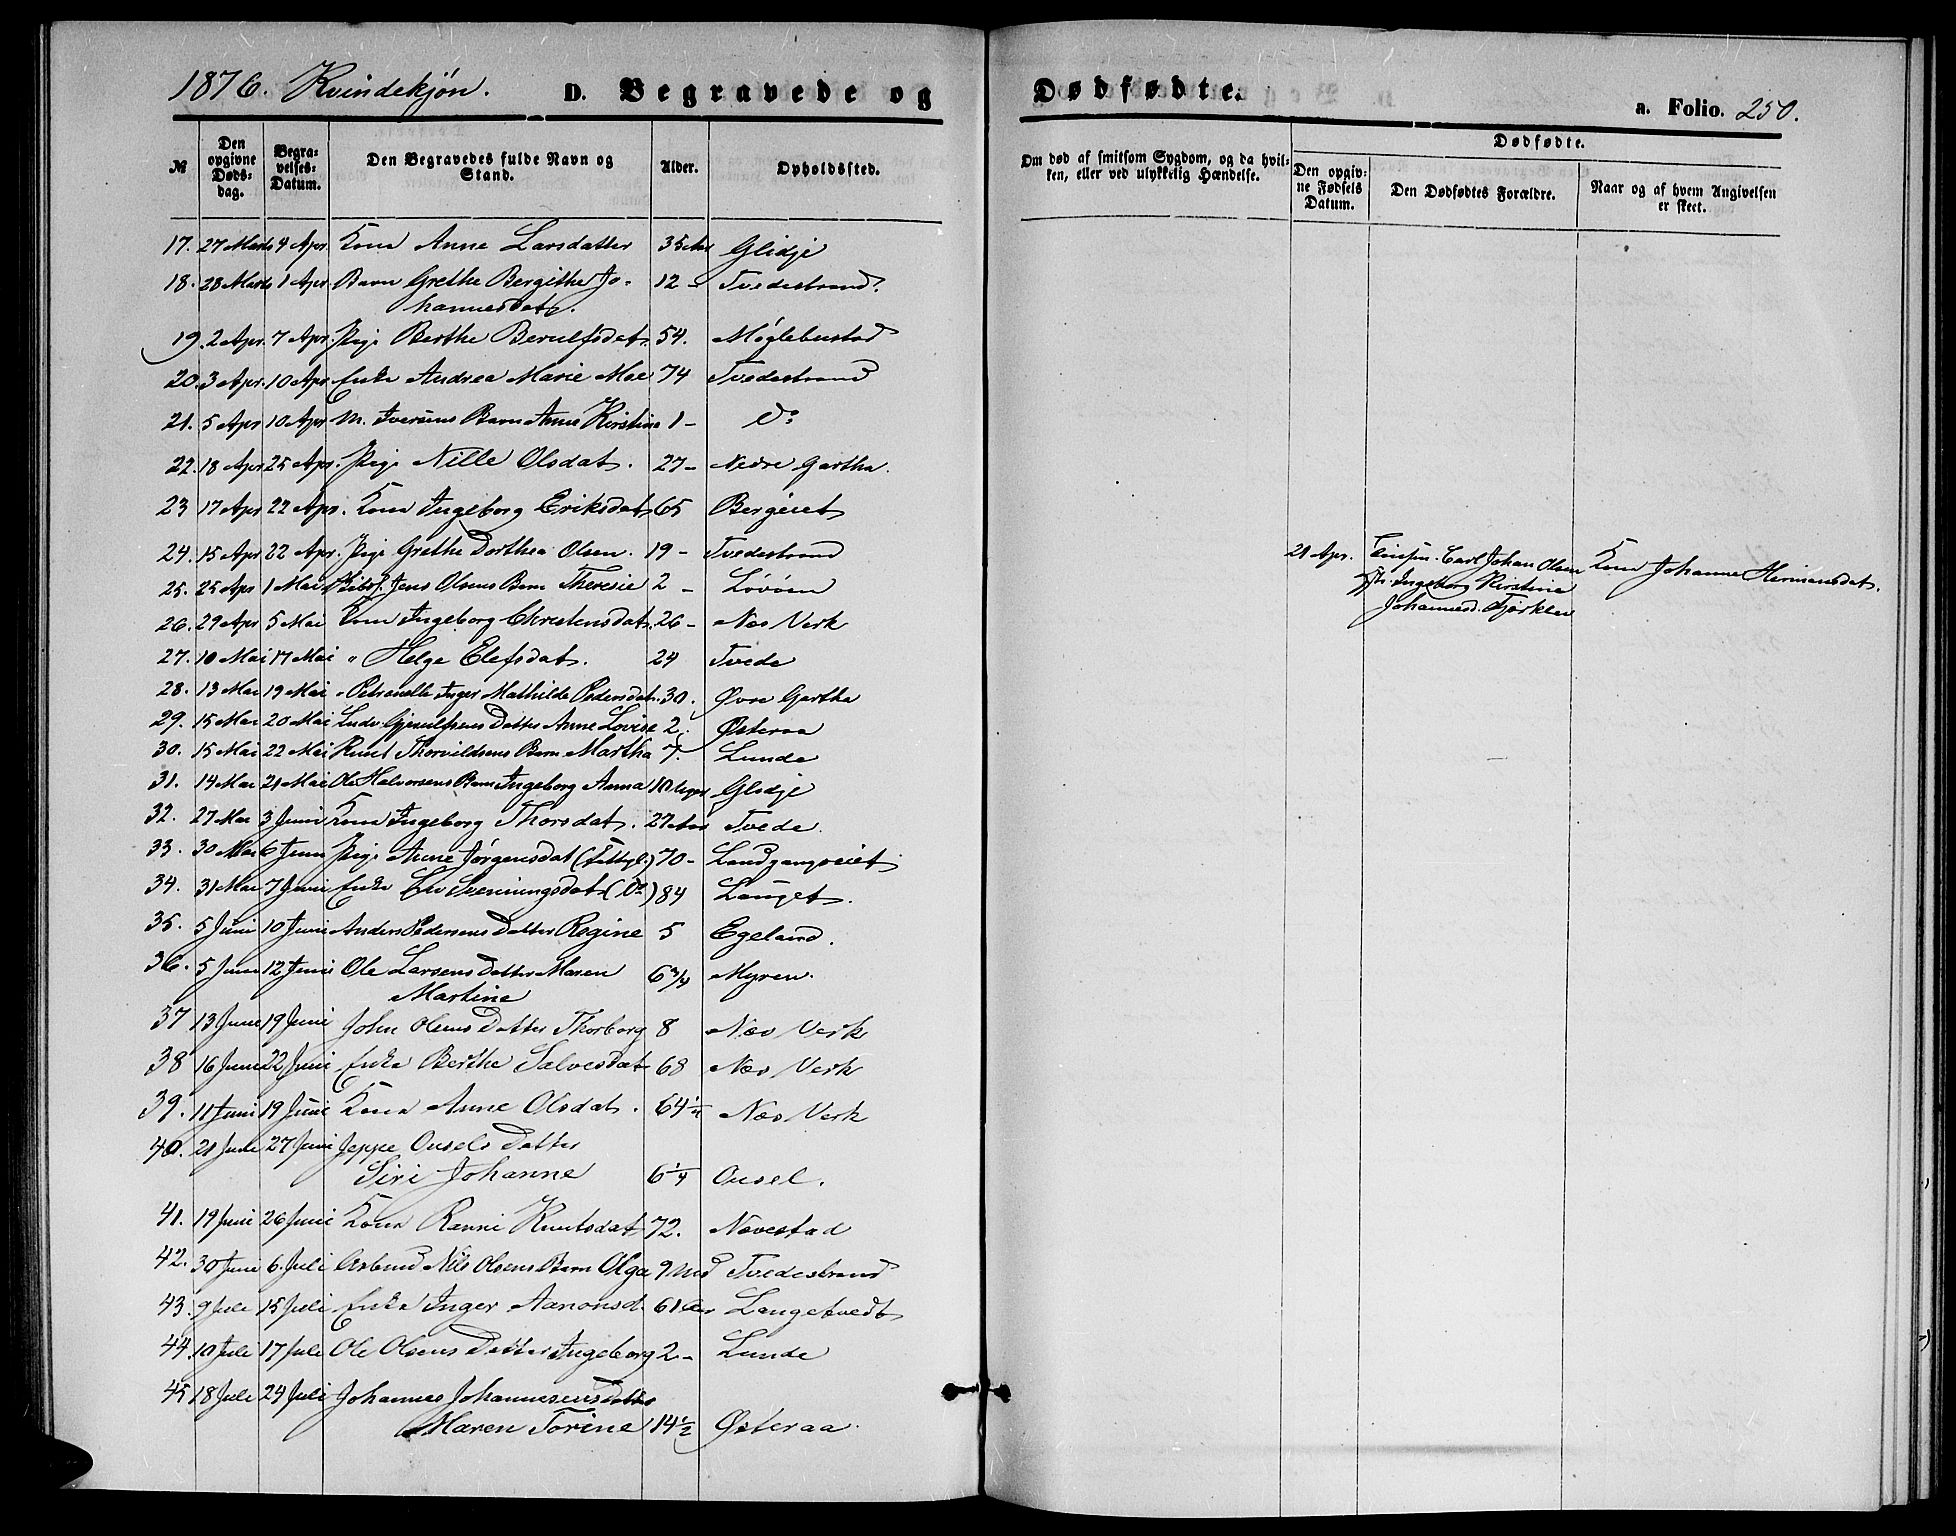 1876. Kvindekjøn. D. Begravede og Dødfødte. a. Folio. 250.
№ Den opgivne Døds-dag. Begra-velses-Datum. Den Begravedes fulde Navn og Stand. Alder. Opholdssted. Om død af smitsom Sygdom, og da hvil-ken, eller ved ulykkelig Hændelse. Dødfødte. Den opgiv-ne Fødsels Datum. Den Dødfødtes Forældre. Naar og af hvem Angivelsen er skeet.
17. 27 Marts 4 Apr. Kona Anne Larsdatter 35 Aar Glidje
18. 28 Marts 1 Apr. Barn Grethe Bergithe Jo-
hannesdat. 12 - Tvedestrand.
19. 2 Apr. 7 Apr. Pige Berthe Berulfsdat. 54. Møglebustad
20. 3 Apr. 10 Apr. Enke Andrea Marie Moe 74 Tvedestrand
21. 5 Apr 10 Apr M. Iversens Barn Anne Kirstine 1 - Do
22. 18 Apr 25 Apr. Pige Nille Olsdat. 27 - Nedre Gartha.
23 17 Apr 22 Apr. Kona Ingeborg Eriksdat 65 Bergeiet
24. 15 Apr 22 Apr. Pige Grethe Dorthea Olsen. 19 - Tvedestrand
25. 25 Apr 1 Mai Jens Olsens Barn Theresie 2 - Løvøen
26. 29 Apr 5 Mai Kona Ingeborg Christensdat. 26 - Næs Verk
27. 10 Mai 17 Mai " Helge Elefsdat. 24 Tvede
28. 13 Mai 19 Mai " Petranelle Inger Mathilde Pedersdat. 30. Øvre Gartha
29. 15 Mai 20 Mai Datter Anne Lovise 2. Østeraa
30. 15 Mai 22 Mai Knut Thorvildsens Barn Martha 7. Lunde
31. 14 Mai 21 Mai Ole Halvorsens Barn Ingeborg Anna 10 Uger Glidje
32. 27 Mai 3 Juni Kona Ingeborg Thorsdat. 27 Aar Tvede.
33. 30 Mai 6 Juni Pige Anne Jørgensdat (Fattigl.) 70 - Landgangseiet
34. 31 Mai 7 Juni Enke Liv Svenningsdat (Do) 84 Lauget.
35. 5 Juni 10 Juni Anders Pedersens Datter Regine 5 Egeland.
36. 5 Juni 12 Juni Ole Larsens Datter Maren
Martine 6 3/4 Myren.
37 13 Juni 19 Juni John Olsens Datter Thorborg 8 Næs Verk
38 16 Juni 22 Juni Enke Berthe Salvesdat 68 Næs Verk
39. 11 Juni 19 Juni Kona Anne Olsdat. 64 1/4 Næs Verk
40. 21 Juni 27 Juni Jeppe Ousels Datter
Siri Johanne 6 1/4 Ousel.
41. 19 Juni 26 Juni Kona Ranni Knutsdat 72. Nævestad
42. 30 Juni 6. Juli Arbmd Nils Olsens Barn Olga 9 Md Tvedestrand
43. 9 Juli 15 Juli Enke Inger Aanonsd. 61 Aar Langetvedt
44. 10 Juli 17 Juli Ole Olsens Datter Ingeborg 2 - Lunde
45 18 Juli 24 Juli Johannes Johannesens Datter
Maren Torine 14 1/2 Østeraa.
21 Apr. Carl Johan Olsen Kona Johanne Hermansdat.
Ingeborg Kirstine
Johannesd. Fjærkleiv